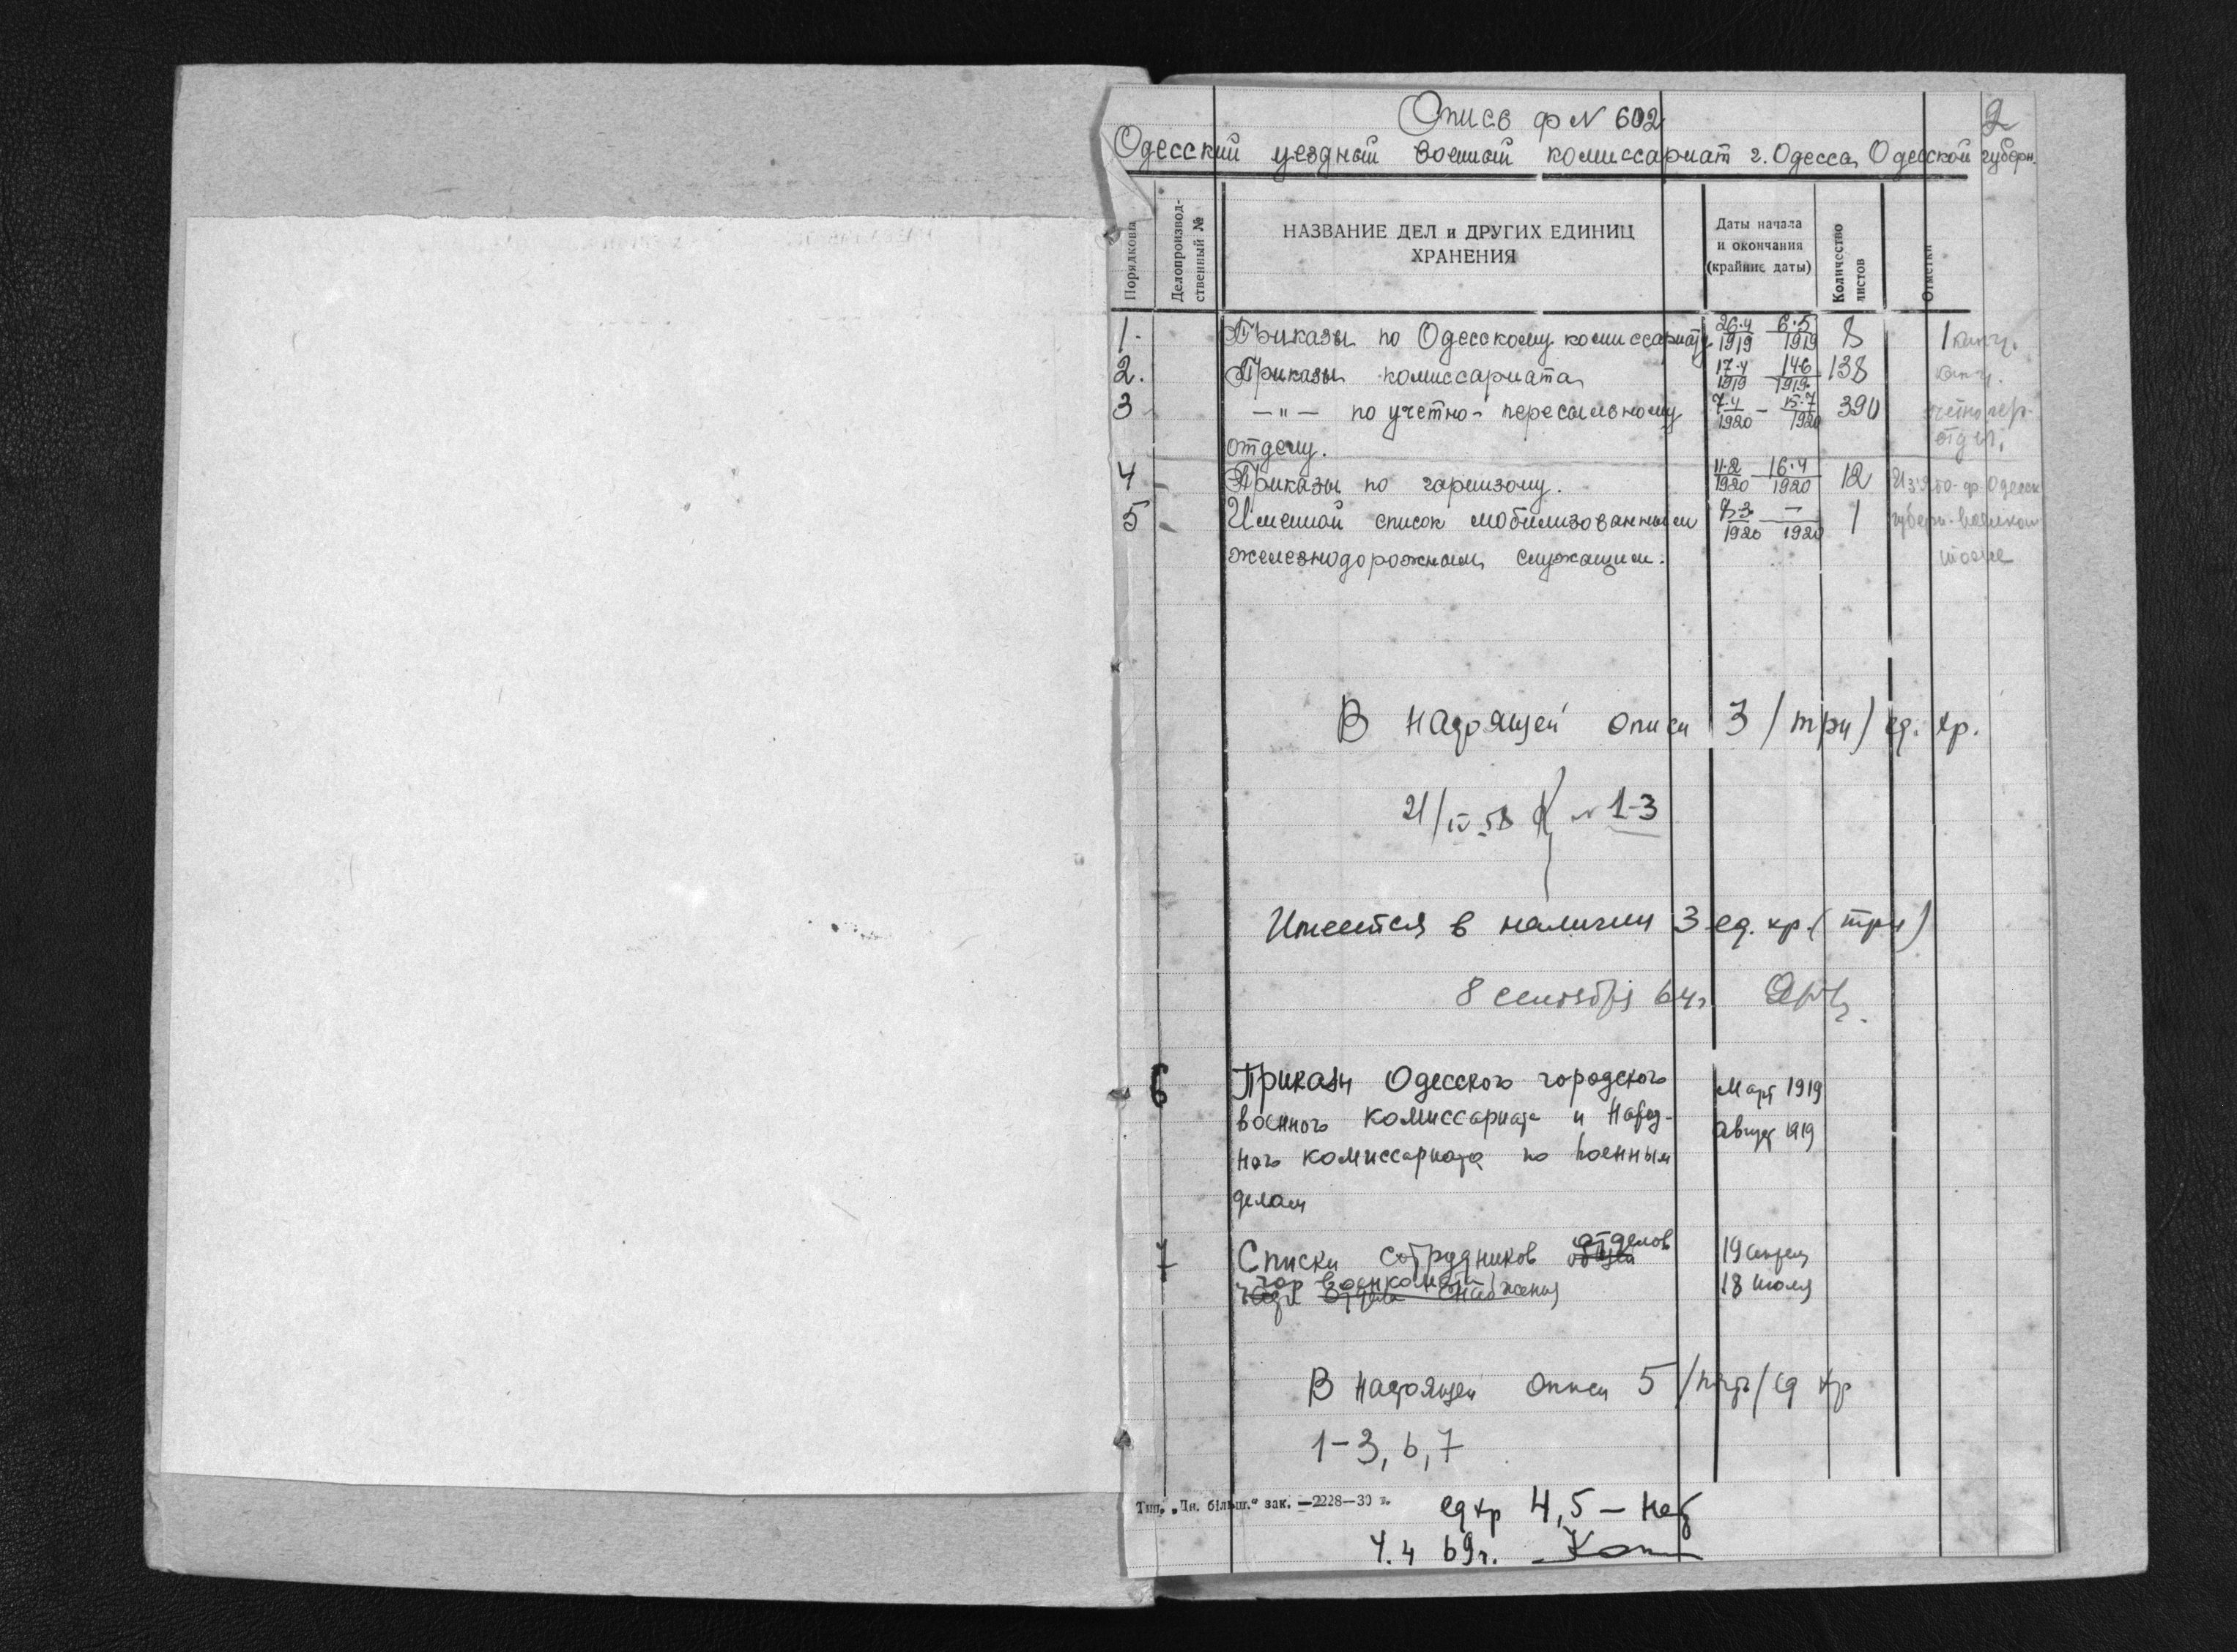 Опись ф N 602
2
Одесский уездный военный комиссариат г. Одесса, Одесской губерн.
Порядковый
Делопроизвод-
ственный №
НАЗВАНИЕ ДЕЛ и ДРУГИХ ЕДИНИЦ
ХРАНЕНИЯ
Даты начала
и окончания
(крайние даты)
Количество
листов
Отметки
1. Приказы по Одесскому комиссариату 26.4 1919 — 6.5 1919 8 1 канц.
2. Приказы комиссариата 17.4 1919 — 14.6 1919 138 канц.
3 —"— по учетно-пересыльному 7.4 1920 — 15.7 1920 390
отделу.
4 — Приказы по гарнизону. 11.2 1920 — 16.4 1920 12 Из'ято-ф. Одесск
5 — Именной список мобилизованным 1920 — 1920 1
железнодорожным служащим.
В настоящей описи 3 /три/ ед. хр.
21/IV 58 N 1-3
Имеется в наличии 3 ед. хр. (три)
8 сентября 64 г.
6 Приказы Одесского городского Март 1919
военного комиссариата и Народ- Август 1919
ного комиссариата по военным
делам
7 Списки сотрудников общей отделов 19 апреля
гор военкомата 18 июля
части отдела снабжения
В настоящей описи 5 /пять/ ед хр
1-3, 6, 7
Тип. „Чн. більш." зак. —2228—30 г.
ед хр 4, 5 — нет
4.4 69 г.